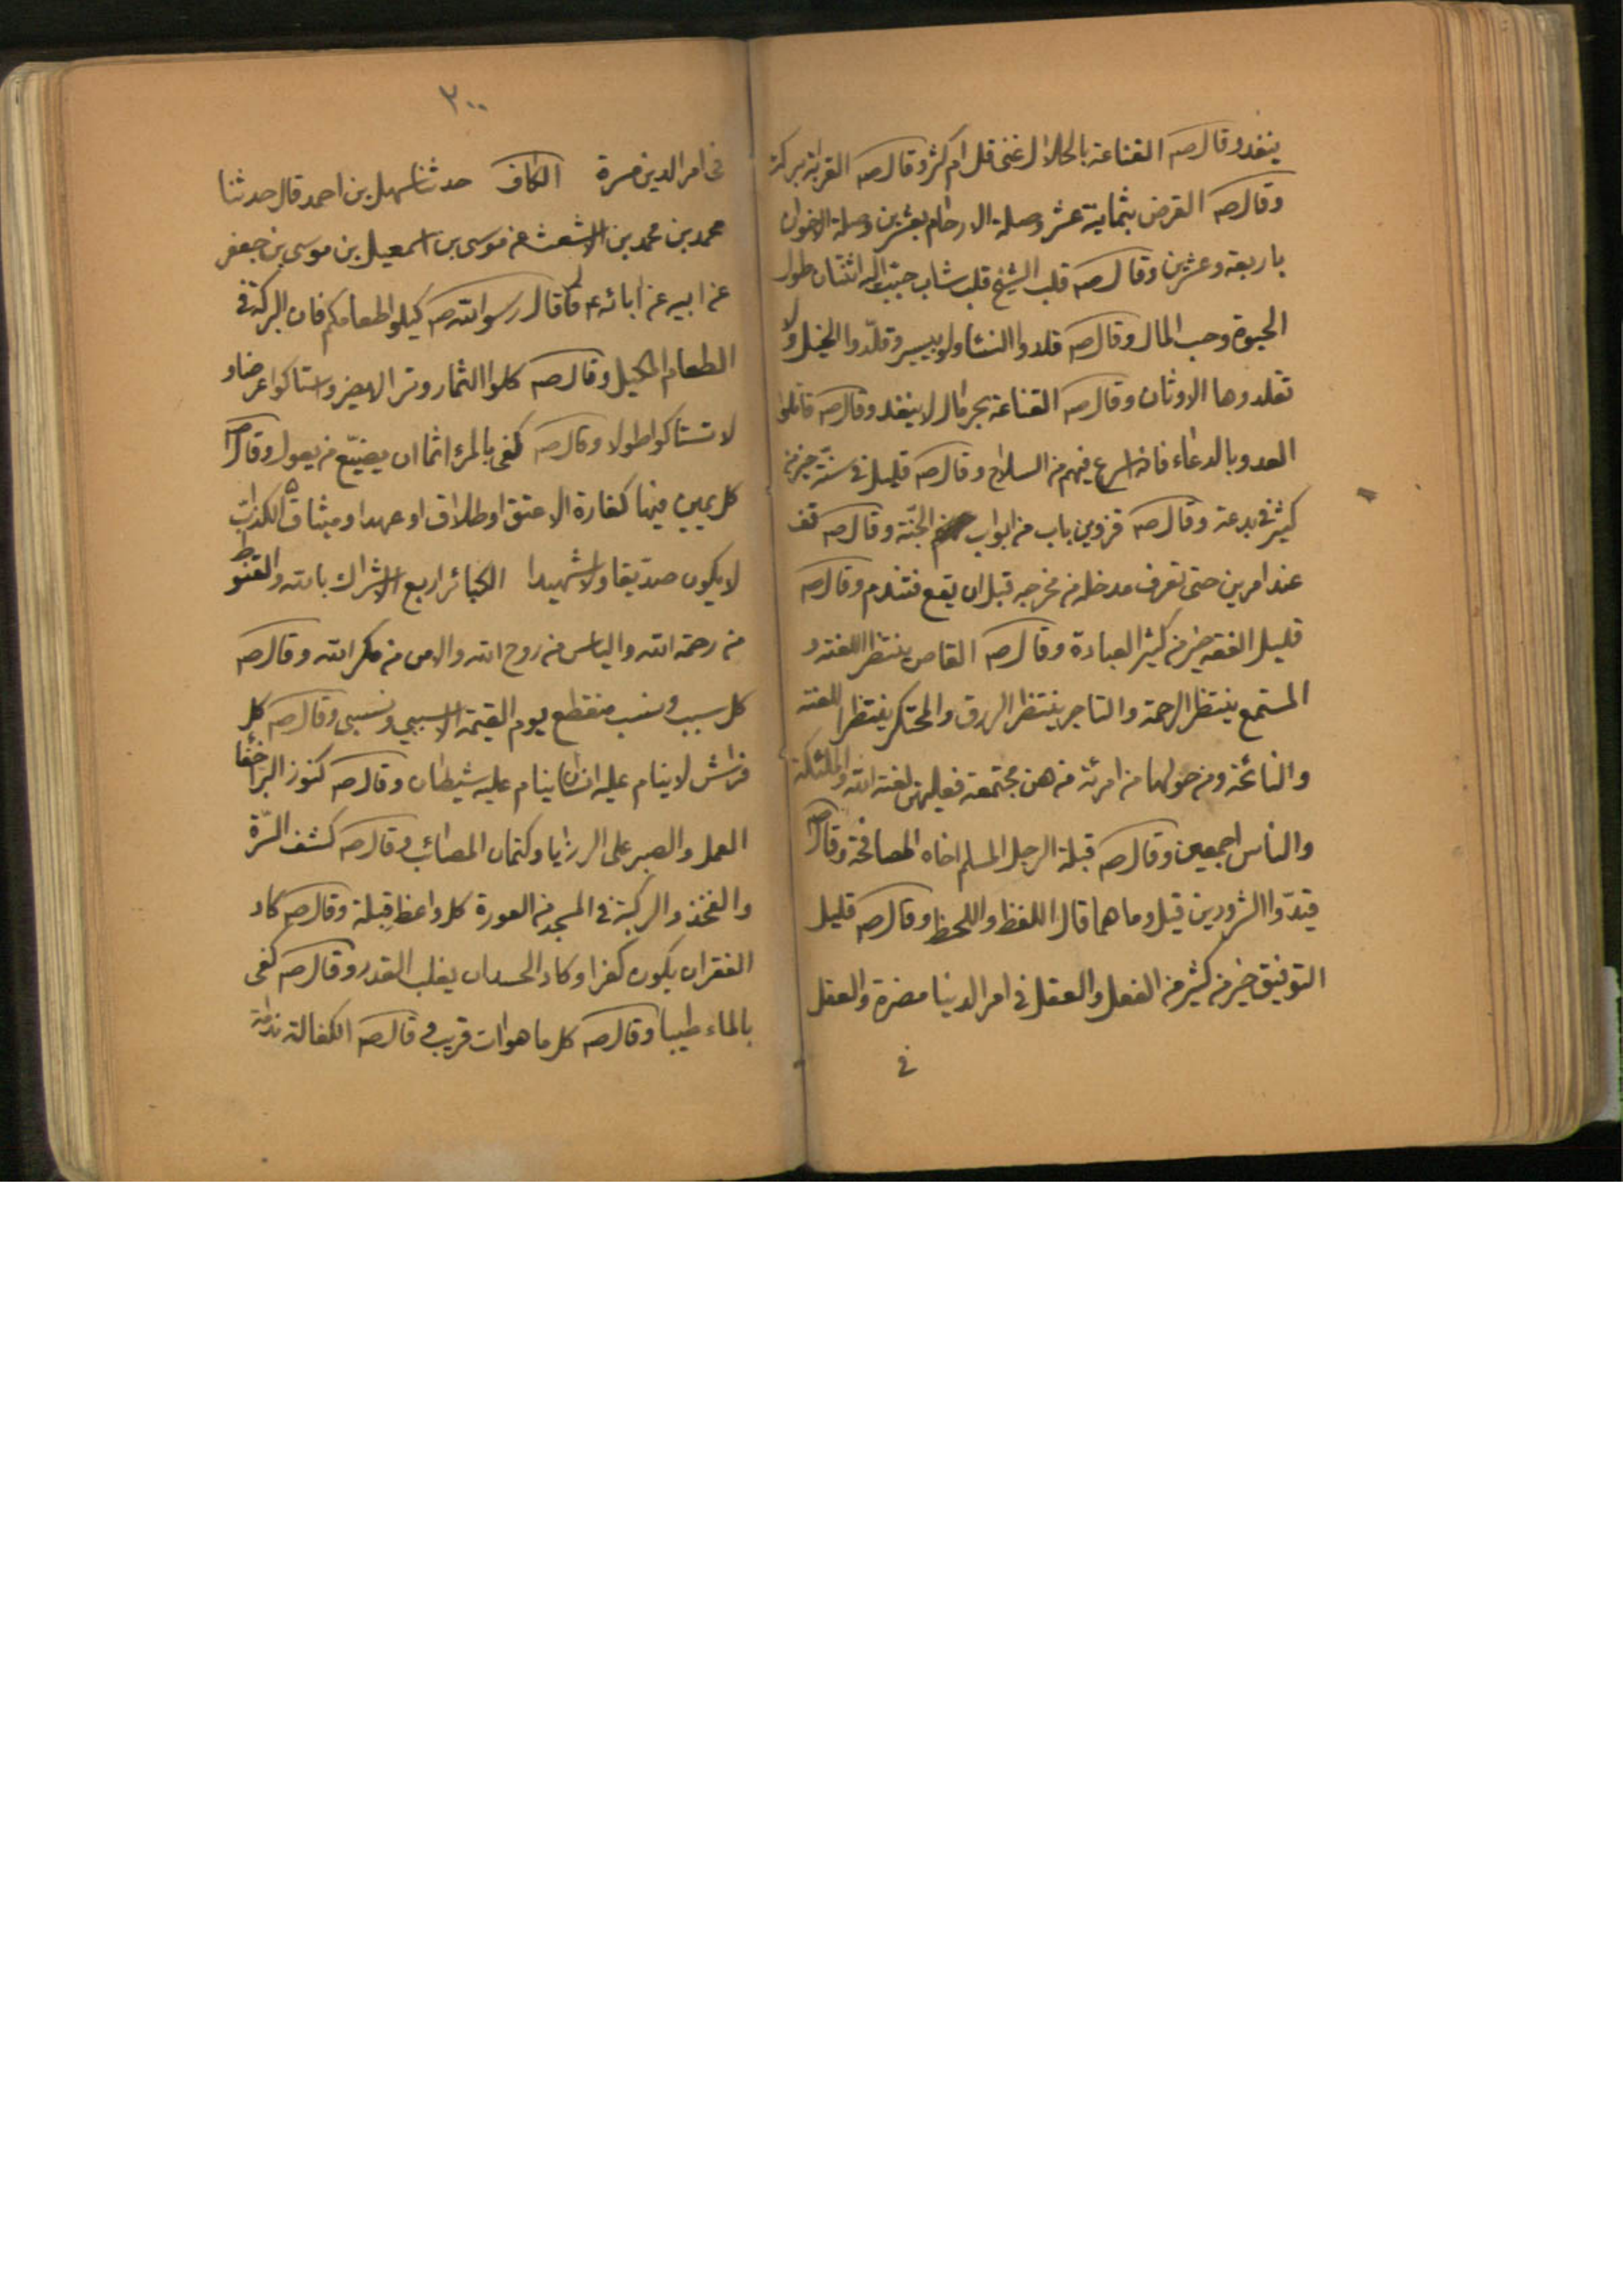 ينفد وقال صه القناعة بالحلال غنى قل ام كثر وقال صه القرابة بركة
وقال صه القرض بثمانية عشر وصلة الارحام بعشرين وصلة الاخوان
باربعة وعشرين وقال صه قلب الشيخ قلب شاب حبب اليه اثنتان طول
الحيوة وحب المال وقال صه قلدوا النساء ولو بسير وقلدوا الخيل ولا
تقلدوها الاوثان وقال صه القناعة بحر مال لا ينفد وقال صه قاتلوا
العدو بالدعاء فانه اسرع فيهم من السلاح وقال صه قليل فى سنة خير من
كثير فى بدعة وقال صه قزوين باب من ابواب الجنة وقال صه قف
عند امرين حتى تعرف مدخله من مخرجه قبل ان يقع فتندم وقال صه
قليل الفقه خير من كثير العبادة وقال صه القاص ينتظر اللعنة و
المستمع ينتظر الرحمة والتاجر ينتظر الرزق والمحتكر ينتظر اللعنة
والنائحة ومن حولها من امرئة من هن مجتمعة فعليهن لعنة الله والملئكة
والناس اجمعين وقال صه قبلة الرجل المسلم اخاه المصافحة وقال صه
قيدوا الشرودين قيل وما هما قال اللفظ واللحظ وقال صه قليل
التوفيق خير من كثير من الفعل والعقل فى امر الدنيا مضرة والعقل
فى
٢٠٠
فى امر الدين مسرة الكاف حدثنا سهل بن احمد قال حدثنا
محمد بن محمد بن الاشعث عن موسى بن اسمعيل بن موسى بن جعفر
عن ابيه عن ابائه قال قال رسول الله صه كيلوا طعامكم فان البركة فى
الطعام المكيل وقال صه كلوا الثمار وترا لا يضر واستاكوا عرضا و
لا تستاكوا طولا وقال صه كفى بالمرء اثما ان يضيع من يعول وقال صه
كل يمين فيها كفارة الا عتق او طلاق او عهدا وميثاق الكذاب
لا يكون صديقا ولا شهيدا الكبائر اربع الاشراك بالله والقنوط
من رحمة الله والياس من روح الله والامن من مكر الله وقال صه
كل سبب ونسب منقطع يوم القيمة الا سببى ونسبى وقال صه كل
فراش لا ينام عليه انسان ينام عليه شيطان وقال صه كنوز البر اخفا
العمل والصبر على الرزايا وكتمان المصائب وقال صه كشف السرة
والفخذ والركبة فى المسجد من العورة كل واعظ قبلة وقال صه كاد
الفقر ان يكون كفرا وكاد الحسد ان يغلب القدر وقال صه كفى
بالماء طيبا وقال صه كل ما هو ات قريب وقال صه الكفالة ندامة